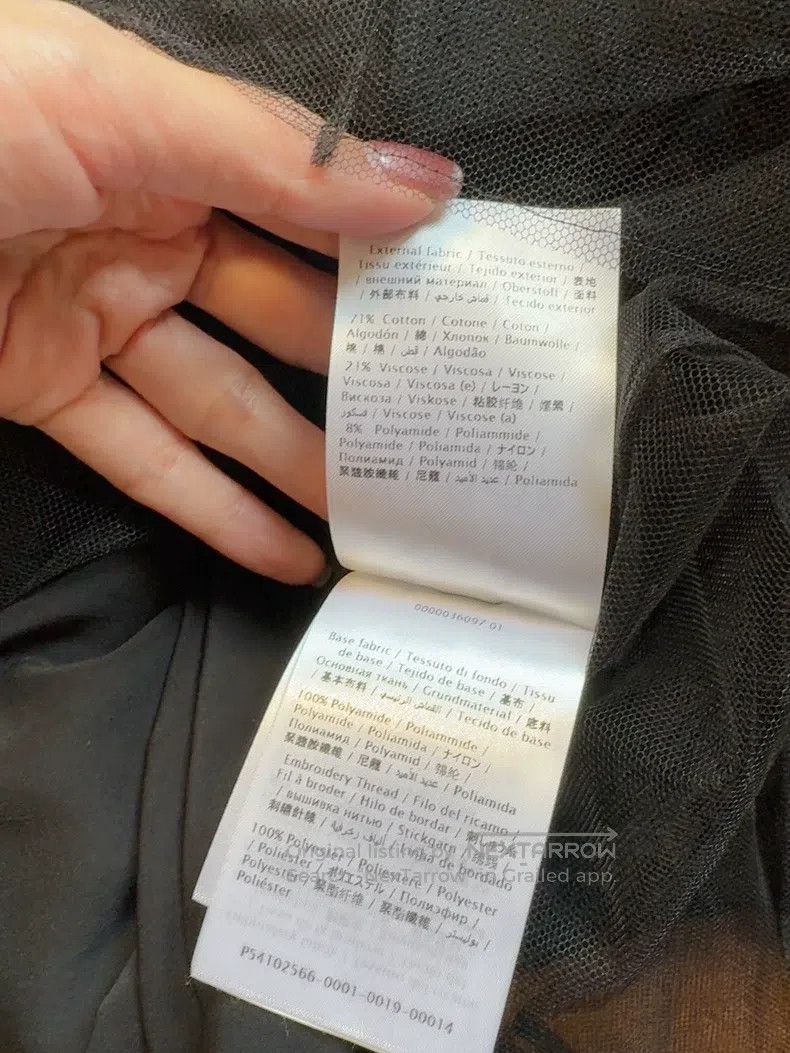 External fabric / Tessuto esterno
Tissu extérieur / Tejido exterior / 表地
/ внешний материал / Oberstoff / 面料
/ 外部布料 / قماش خارجي / Tecido exterior
71% Cotton / Cotone / Coton /
Algodón / 綿 / Хлопок / Baumwolle /
棉 / 棉 / قطن / Algodão
21% Viscose / Viscosa / Viscose /
Viscosa / Viscosa (e) / レーヨン /
Вискоза / Viskose / 粘胶纤维 /
فسكوز / Viscose / Viscose (a)
8% Polyamide / Poliammide /
Polyamide / Poliamida / ナイロン /
Полиамид / Polyamid / 锦纶 /
聚醯胺纖維 / 尼龍 / عديد الأميد / Poliamida
0000036097 01
Base fabric / Tessuto di fondo / Tissu
de base / Tejido de base / 基布 /
Основная ткань / Grundmaterial / 底料
/ 基本布料 / القماش الرئيسي / Tecido de base
100% Polyamide / Poliammide /
Polyamide / Poliamida / ナイロン /
Полиамид / Polyamid / 锦纶 /
聚醯胺纖維 / 尼龍 / عديد الأميد / Poliamida
Embroidery Thread / Filo del ricamo /
Fil à broder / Hilo de bordar /
/ вышивка нитью / Stickgarn /
刺繡針線 / الياف زخرفية / Linha de bordado
100% Polyester / Poliestere / Polyester
/ Poliéster / ポリエステル / Полиэфир /
Polyester / 聚酯纤维 / 聚酯纖維 / بوليستر /
Poliéster
P54102566-0001-0019-00014
Original listing by NEXTARROW
Search NexTarrow on Grailed app.